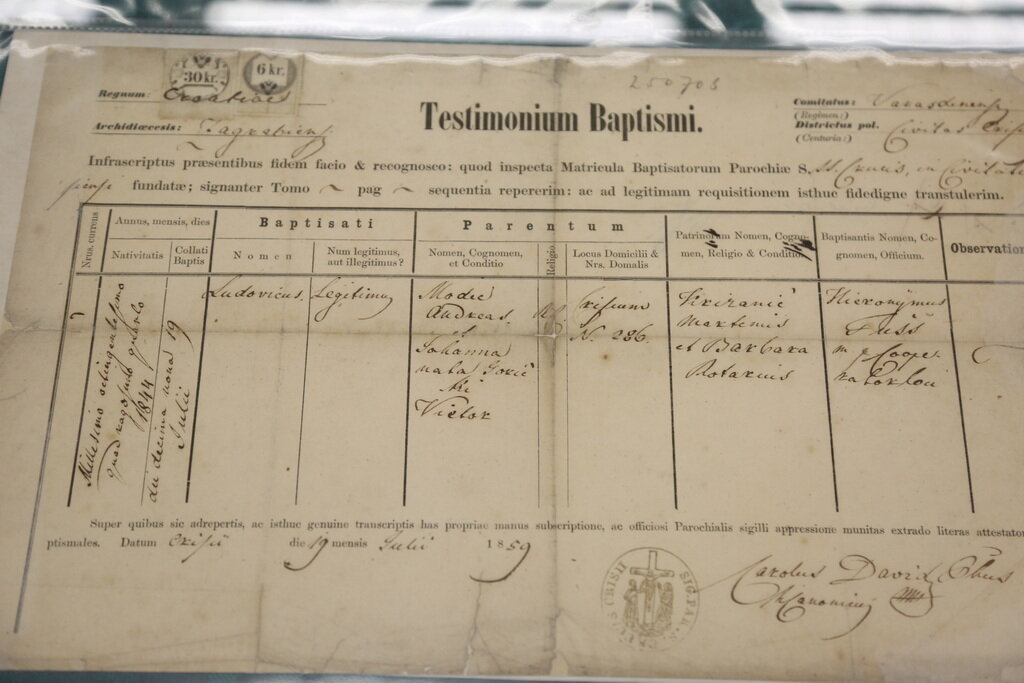 30 kr.
6 kr.
250703
Regnum: Croatiae
Archidiœcesis: Zagrabiens
Testimonium Baptismi.
Comitatus: Varasdinens
(Regimen:)
Districtus pol. Civitas Crisi
(Centuria:)
Infrascriptus præsentibus fidem facio & recognosco: quod inspecta Matricula Baptisatorum Parochiæ S. Crucis, in Civitate
siensi fundatæ; signanter Tomo ~ pag ~ sequentia repererim: ac ad legitimam requisitionem isthuc fidedigne transtulerim.
Nrus. currens
Annus, mensis, dies
Nativitatis
Collati Baptis
Baptisati
Nomen
Num legitimus, aut illegitimus?
Parentum
Nomen, Cognomen, et Conditio
Religio
Locus Domicilii & Nrs. Domalis
Patrinorum Nomen, Cognomen, Religio & Conditio
Baptisantis Nomen, Cognomen, Officium.
Observation
Millesimo octingentesimo
quadragesimo quarto
1844
die decima nona 19
Julii
Ludovicus.
Legitimus
Modec
Andreas
et
Johanna
nata
Victor
Crisium
N. 286.
Kriz̃anić
et Barbara
Hieronymus
Fuss
m. p. Coope
rator loci
Super quibus sic adrepertis, ac isthuc genuine transcriptis has propriae manus subscriptione, ac officiosi Parochialis sigilli appressione munitas extrado literas attestato
ptismales. Datum Crisii die 19 mensis Julii 1859
SIG. PAR. S. CRUCIS CRISII
Carolus David